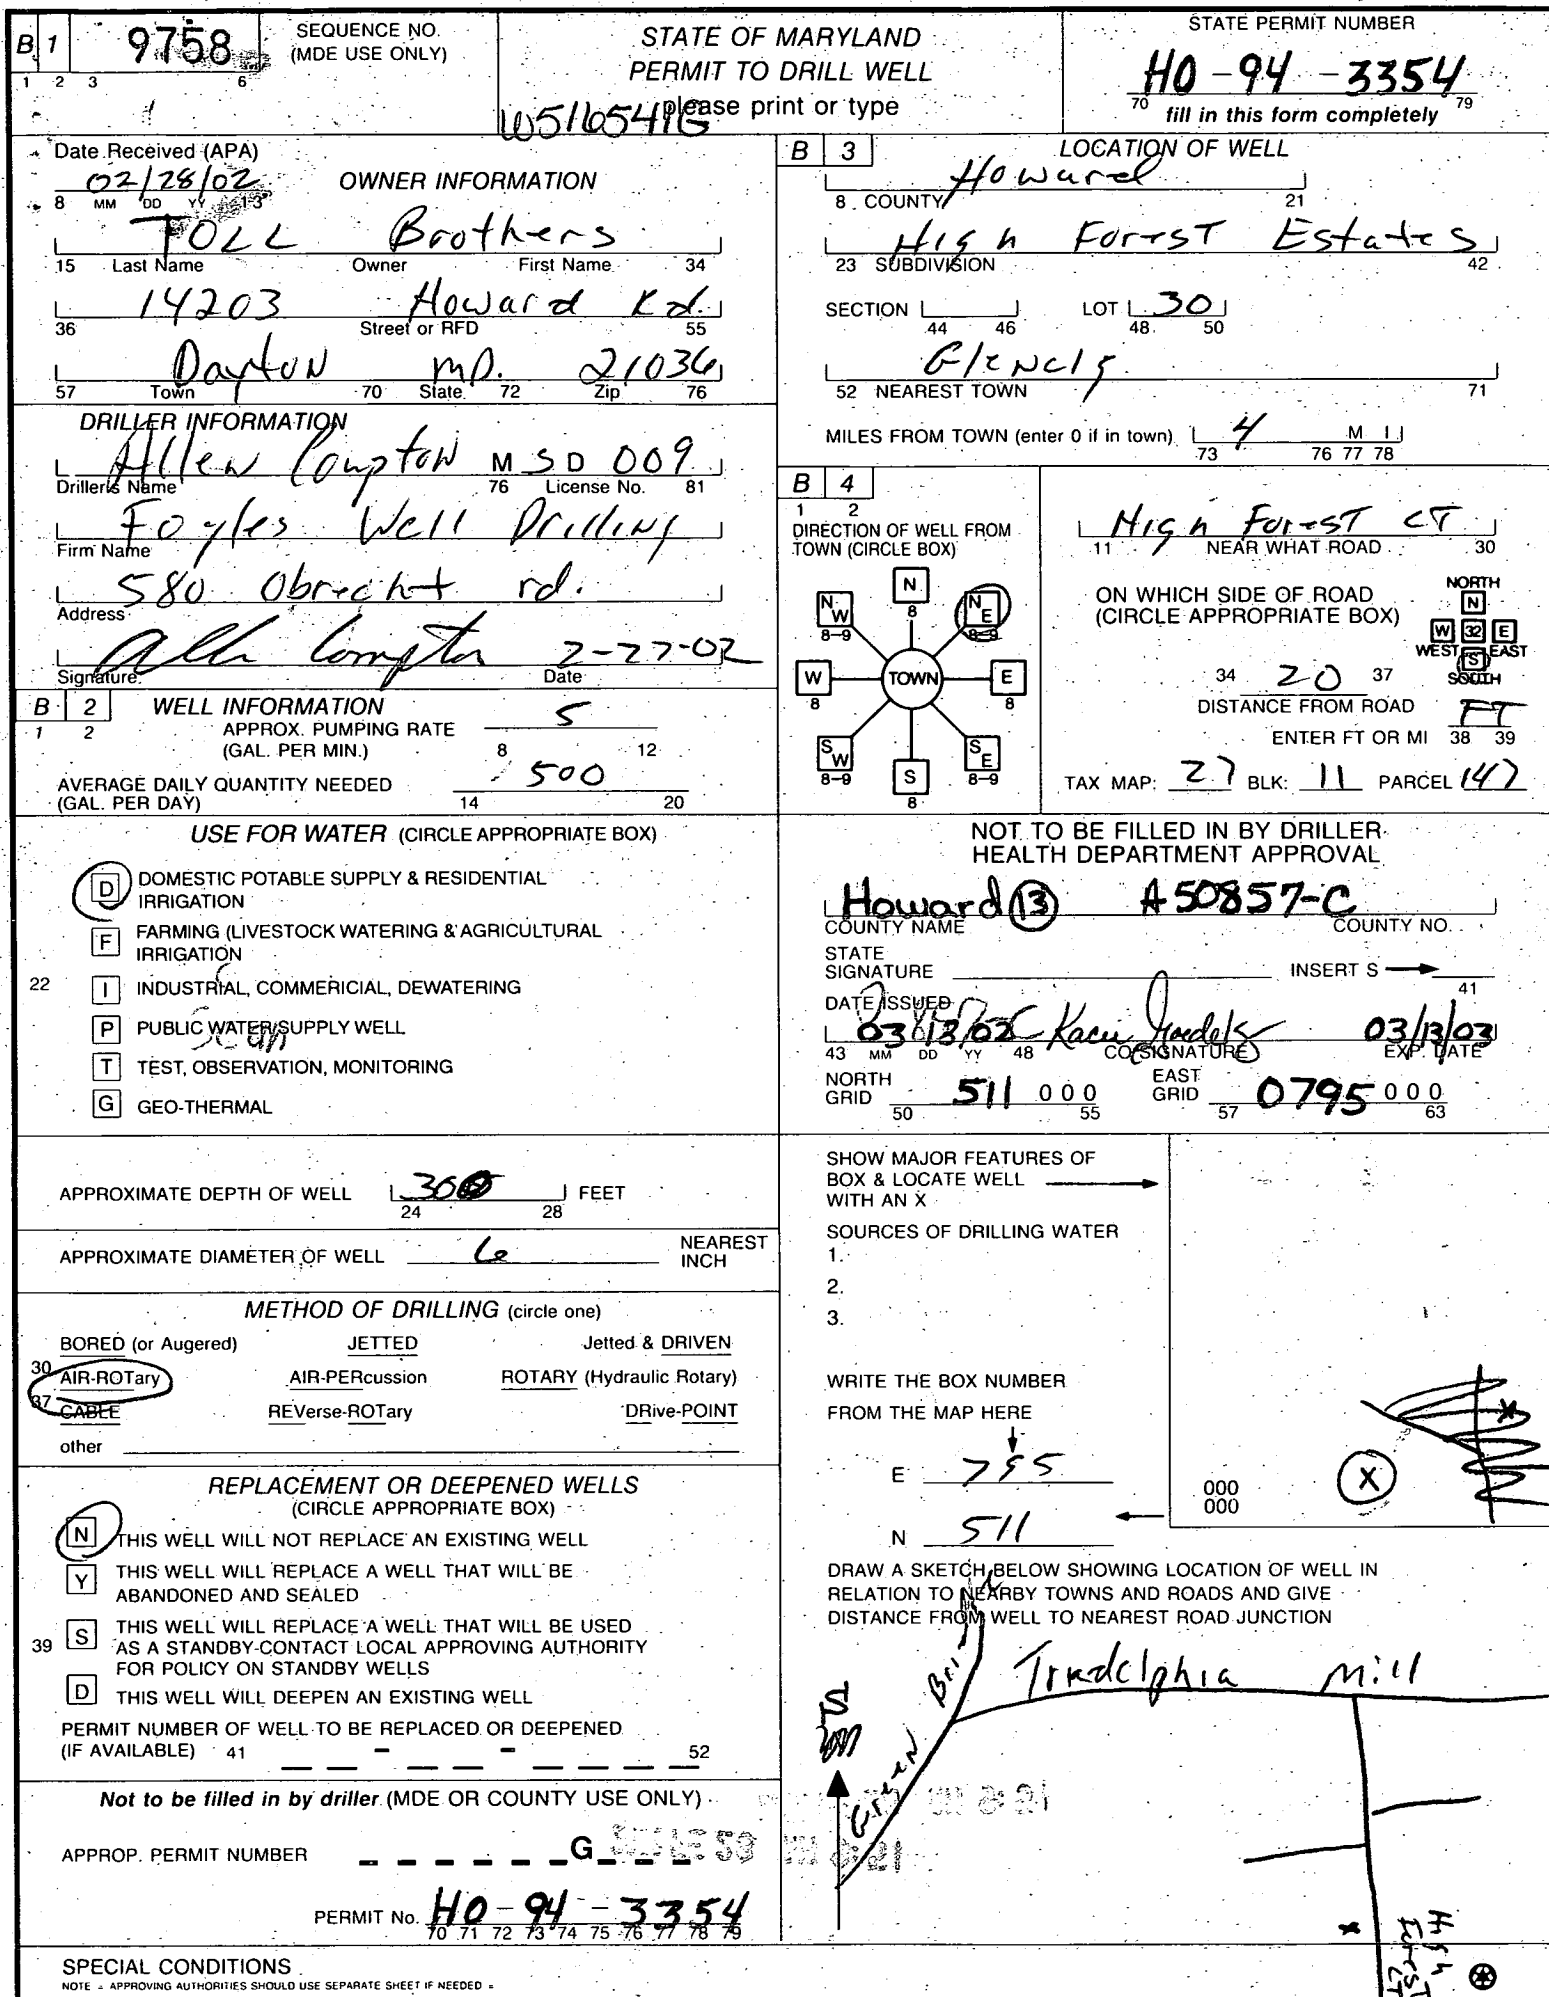 B 1 9758 SEQUENCE NO. (MDE USE ONLY)
1 2 3 6
STATE OF MARYLAND
PERMIT TO DRILL WELL
please print or type
W516541G
STATE PERMIT NUMBER
HO-94-3354
70 79
fill in this form completely
Date Received (APA)
02/28/02
8 MM DD YY 13
OWNER INFORMATION
TOLL Brothers
15 Last Name Owner First Name 34
14203 Howard Rd.
36 Street or RFD 55
Dayton MD. 21036
57 Town 70 State 72 Zip 76
DRILLER INFORMATION
Allen Compton M S D 009
Driller's Name 76 License No. 81
Foyles Well Drilling
Firm Name
580 Obrecht rd.
Address
Allen Compton 2-27-02
Signature Date
B 2 WELL INFORMATION
1 2
APPROX. PUMPING RATE 5
(GAL. PER MIN.) 8 12
AVERAGE DAILY QUANTITY NEEDED 500
(GAL. PER DAY) 14 20
USE FOR WATER (CIRCLE APPROPRIATE BOX)
D DOMESTIC POTABLE SUPPLY & RESIDENTIAL
IRRIGATION
F FARMING (LIVESTOCK WATERING & AGRICULTURAL
IRRIGATION
22 I INDUSTRIAL, COMMERICIAL, DEWATERING
P PUBLIC WATER SUPPLY WELL
T TEST, OBSERVATION, MONITORING
G GEO-THERMAL
APPROXIMATE DEPTH OF WELL 300 FEET
24 28
APPROXIMATE DIAMETER OF WELL 6 NEAREST INCH
METHOD OF DRILLING (circle one)
BORED (or Augered) JETTED Jetted & DRIVEN
30 AIR-ROTary AIR-PERcussion ROTARY (Hydraulic Rotary)
37 CABLE REVerse-ROTary DRive-POINT
other
REPLACEMENT OR DEEPENED WELLS
(CIRCLE APPROPRIATE BOX)
N THIS WELL WILL NOT REPLACE AN EXISTING WELL
Y THIS WELL WILL REPLACE A WELL THAT WILL BE
ABANDONED AND SEALED
39 S THIS WELL WILL REPLACE A WELL THAT WILL BE USED
AS A STANDBY-CONTACT LOCAL APPROVING AUTHORITY
FOR POLICY ON STANDBY WELLS
D THIS WELL WILL DEEPEN AN EXISTING WELL
PERMIT NUMBER OF WELL TO BE REPLACED OR DEEPENED
(IF AVAILABLE) 41 - - 52
Not to be filled in by driller (MDE OR COUNTY USE ONLY)
APPROP. PERMIT NUMBER G
PERMIT No. HO-94-3354
70 71 72 73 74 75 76 77 78 79
SPECIAL CONDITIONS
NOTE - APPROVING AUTHORITIES SHOULD USE SEPARATE SHEET IF NEEDED -
B 3 LOCATION OF WELL
Howard
8 COUNTY 21
High Forest Estates
23 SUBDIVISION 42
SECTION LOT 30
44 46 48 50
Glenelg
52 NEAREST TOWN 71
MILES FROM TOWN (enter 0 if in town) 4 M I
73 76 77 78
B 4
1 2
DIRECTION OF WELL FROM
TOWN (CIRCLE BOX)
N
8
NW NE
8-9 8-9
W TOWN E
8 8
SW SE
8-9 8-9
S
8
High Forest CT
11 NEAR WHAT ROAD 30
ON WHICH SIDE OF ROAD
(CIRCLE APPROPRIATE BOX)
NORTH
N
W 32 E
WEST EAST
S
SOUTH
34 20 37
DISTANCE FROM ROAD FT
ENTER FT OR MI 38 39
TAX MAP: 27 BLK: 11 PARCEL 147
NOT TO BE FILLED IN BY DRILLER
HEALTH DEPARTMENT APPROVAL
Howard 13 A50857-C
COUNTY NAME COUNTY NO.
STATE
SIGNATURE INSERT S
41
DATE ISSUED
03/13/02 03/13/03
43 MM DD YY 48 CO SIGNATURE EXP. DATE
NORTH GRID 511 000 EAST GRID 0795 000
50 55 57 63
SHOW MAJOR FEATURES OF
BOX & LOCATE WELL
WITH AN X
SOURCES OF DRILLING WATER
1.
2.
3.
WRITE THE BOX NUMBER
FROM THE MAP HERE
E 795
N 511
000
000
X
DRAW A SKETCH BELOW SHOWING LOCATION OF WELL IN
RELATION TO NEARBY TOWNS AND ROADS AND GIVE
DISTANCE FROM WELL TO NEAREST ROAD JUNCTION
Triadelphia Mill
Green Bri
High Forest CT